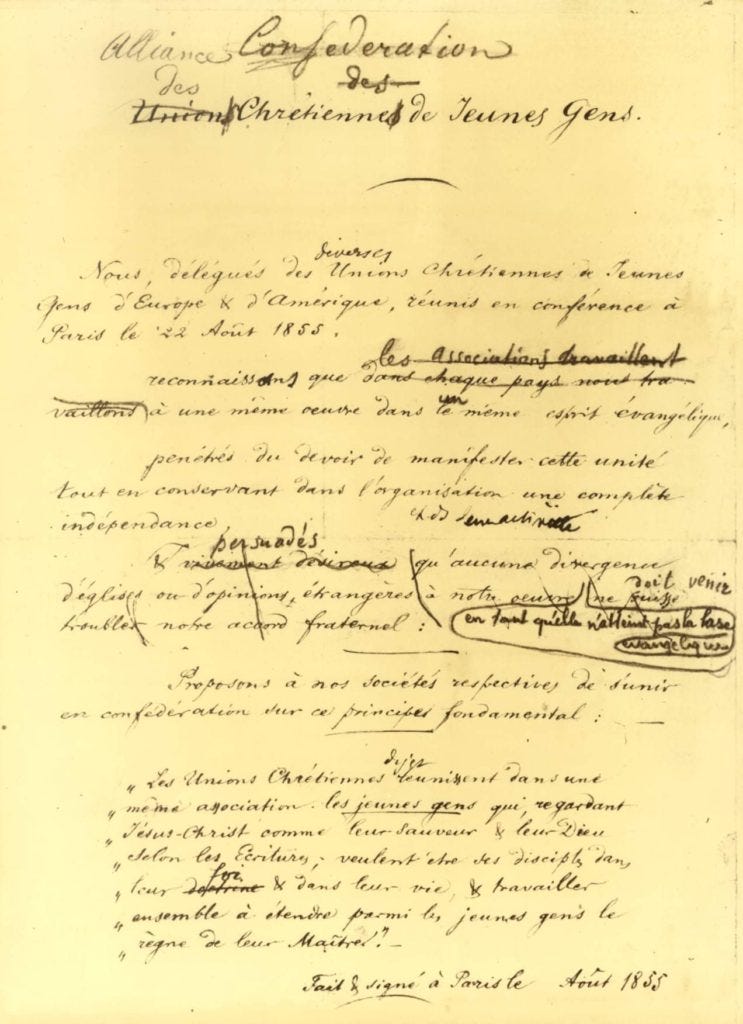 Alliance Confédération
des des
Unions Chrétiennes de Jeunes Gens.
diverses
Nous, délégués des Unions Chrétiennes de Jeunes
Gens d'Europe & d'Amérique, réunis en conférence à
Paris le 22 Août 1855.
les associations travaillent
reconnaissons que dans chaque pays nous tra-
un
vaillons à une même oeuvre dans le même esprit évangélique,
pénétrés du devoir de manifester cette unité
tout en conservant dans l'organisation une complète
indépendance
persuadés
& vivement désireux qu'aucune divergence
doit venir
d'églises ou d'opinions, étrangères à notre oeuvre, ne puisse
troubler notre accord fraternel :
en tant qu'elle n'atteint pas la base
évangélique
Proposons à nos sociétés respectives de s'unir
en confédération sur ce principes fondamental :
"Les Unions Chrétiennes réunissent dans une
"même association les jeunes gens qui, regardant
"Jésus-Christ comme leur sauveur & leur Dieu
"selon les Ecritures, veulent être ses disciples dans
foi
"leur doctrine & dans leur vie, & travailler
"ensemble à étendre parmi les jeunes gens le
"règne de leur Maître." –
Fait & signé à Paris le Août 1855